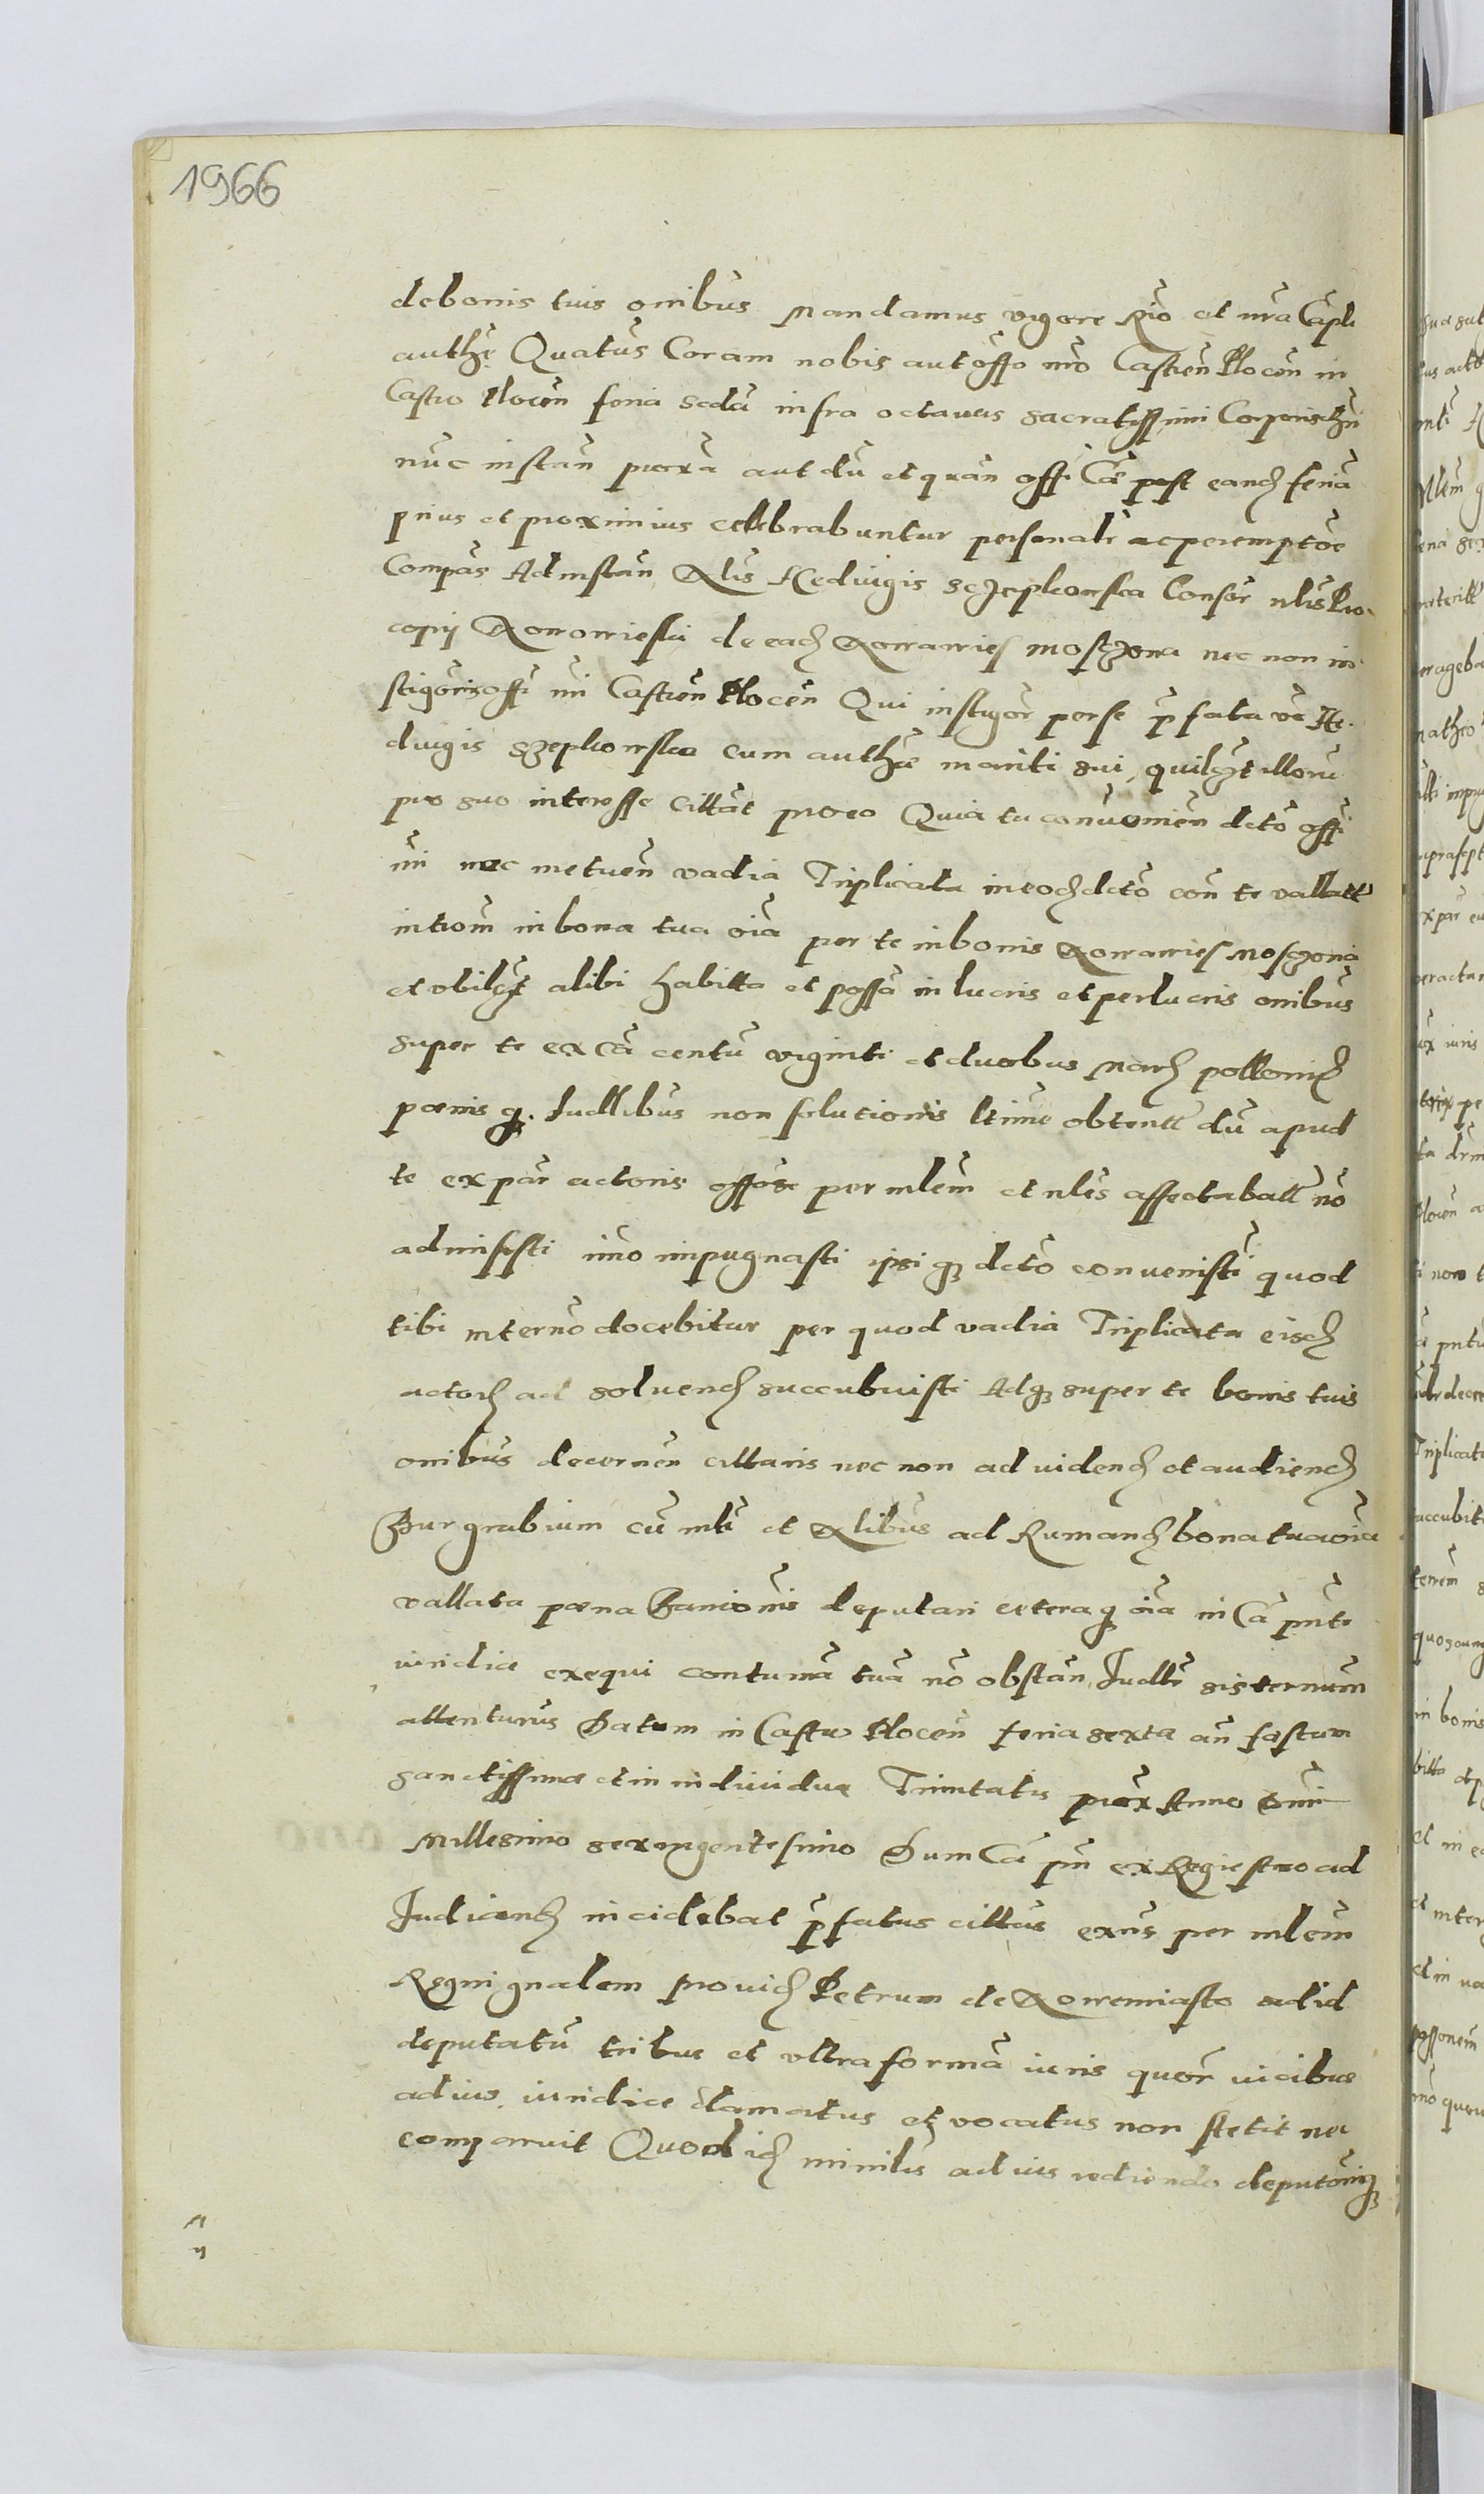 1966
debonis tuis onibus Mandamus vigore Rio et nra Capli
authe Quatus Coram nobis aut offo nro Castren Plocen in
Castro Plocen feria scda infra octauas sacratissimi Corporis Chri
nuc instan proxa aut du et quan offi Cae post eand feria
prius et proximius celebrabuntur personalr ac peremptoe
Compas Ad instan Nlis Heduigis Sczepkowska Consor nlis Pro-
copij de ead nec non in
stigoris offi nri Castren Plocen Qui instigor per se pfata vo He.
duigis Szepkowska cum autha mariti sui, quilt illoru
pro suo interesse cittat pro eo Quia tu conuenien dcto offi
nri nec metuen vadia Triplicata in eod dcto con te vallatt
intiom in bona tua oia per te in bonis
et vbilt alibi habitta et possa in lucris et perlucris onibus
super te ex ca centu viginti et duobus March pollonic
poenis q. Iudlibus non solutionis ltime obtentt du apud
te ex par actoris offose per mlem et nles affectabatt no
admisisti imo impugnasti ipsi q dcto conuenisti quod
tibi in termo docebitur per quod vadia Triplicata eisd
actorib ad soluend succubuisti Adq super te bonis tuis
onibus decernen cittaris nec non ad vidend et audiend
Burgrabium cu mli et Nlibus ad Rumand bona tua oia
vallata poena Banionis deputari ceteraq oia in Ca pnte
iuridice exequi contuma tua no obstan Iudlr sis ternum
attenturus Datum in Castro Plocen feria sexta an festum
sanctissimae et in indiuiduae Trinitatis prox Anno Dmi
Millesimo sexingentesimo Dum Ca pn ex Regiestro ad
Iudicand incidebat pfatus cittus exns per mlem
Regni gnalem prouid Petrum de ad id
deputatu tribus et vltra forma iuris quor vicibus
ad ius iuridice clamatus et vocatus non stetit nec
comparuit Quod id minilis ad ius rediendo deputoniq